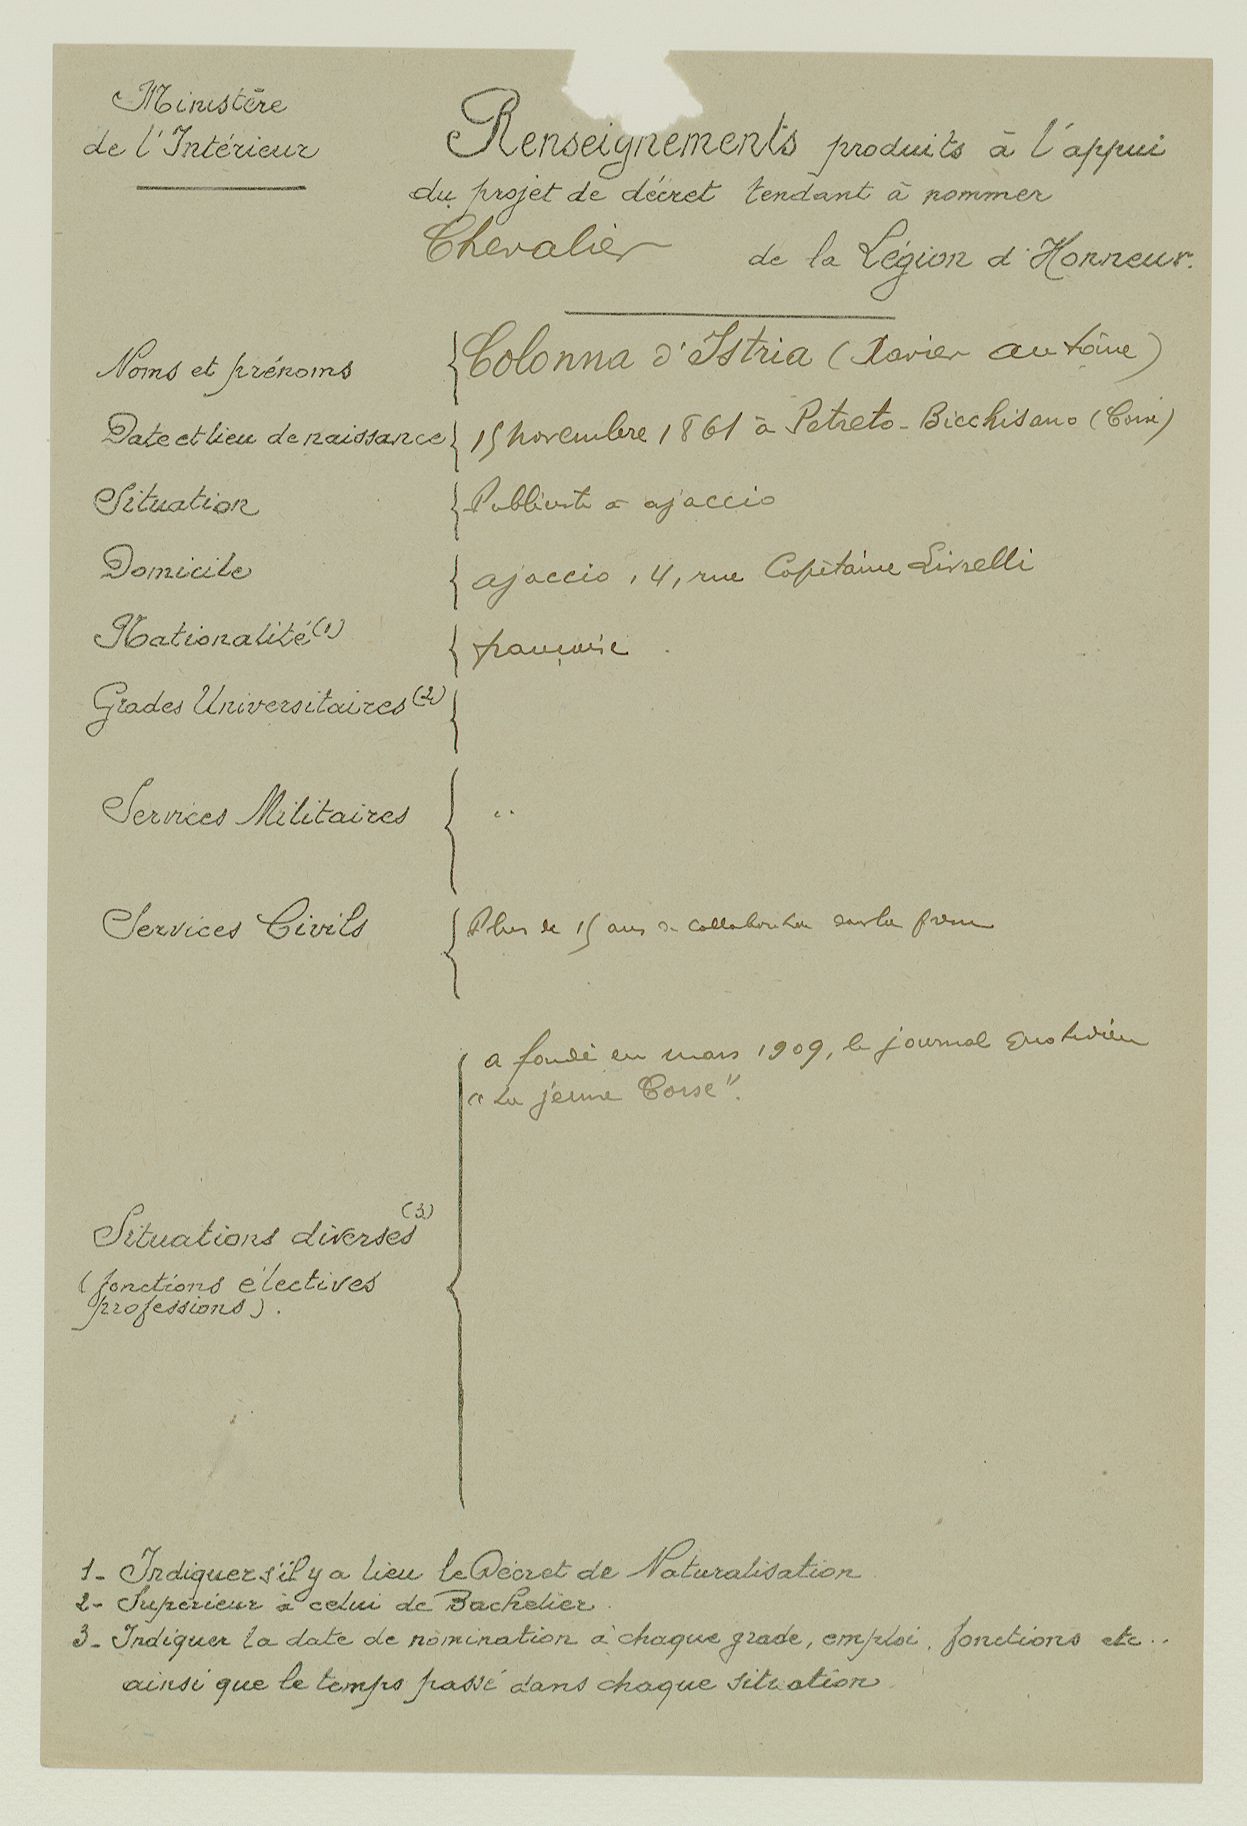 Ministère
de l'Intérieur
Renseignements produits à l'appui
du projet de décret tendant à nommer
Chevalier de la Légion d'Honneur.
Noms et prénoms { Colonna d'Istria (Xavier Antoine)
Date et lieu de naissance { 15 novembre 1861 à Petreto-Bicchisano (Corse)
Situation { Publiciste à Ajaccio
Domicile { Ajaccio, 4, rue Capitaine Livrelli
Nationalité (1) { française.
Grades Universitaires (2) {
Services Militaires { "
Services Civils { Plus de 15 ans de collaboration dans la presse
a fondé en mars 1909, le journal quotidien
"La jeune Corse".
Situations diverses (3) {
(fonctions électives
professions).
1- Indiquer s'il y a lieu le Décret de Naturalisation
2- Supérieur à celui de Bachelier.
3- Indiquer la date de nomination à chaque grade, emploi, fonctions etc..
ainsi que le temps passé dans chaque situation.